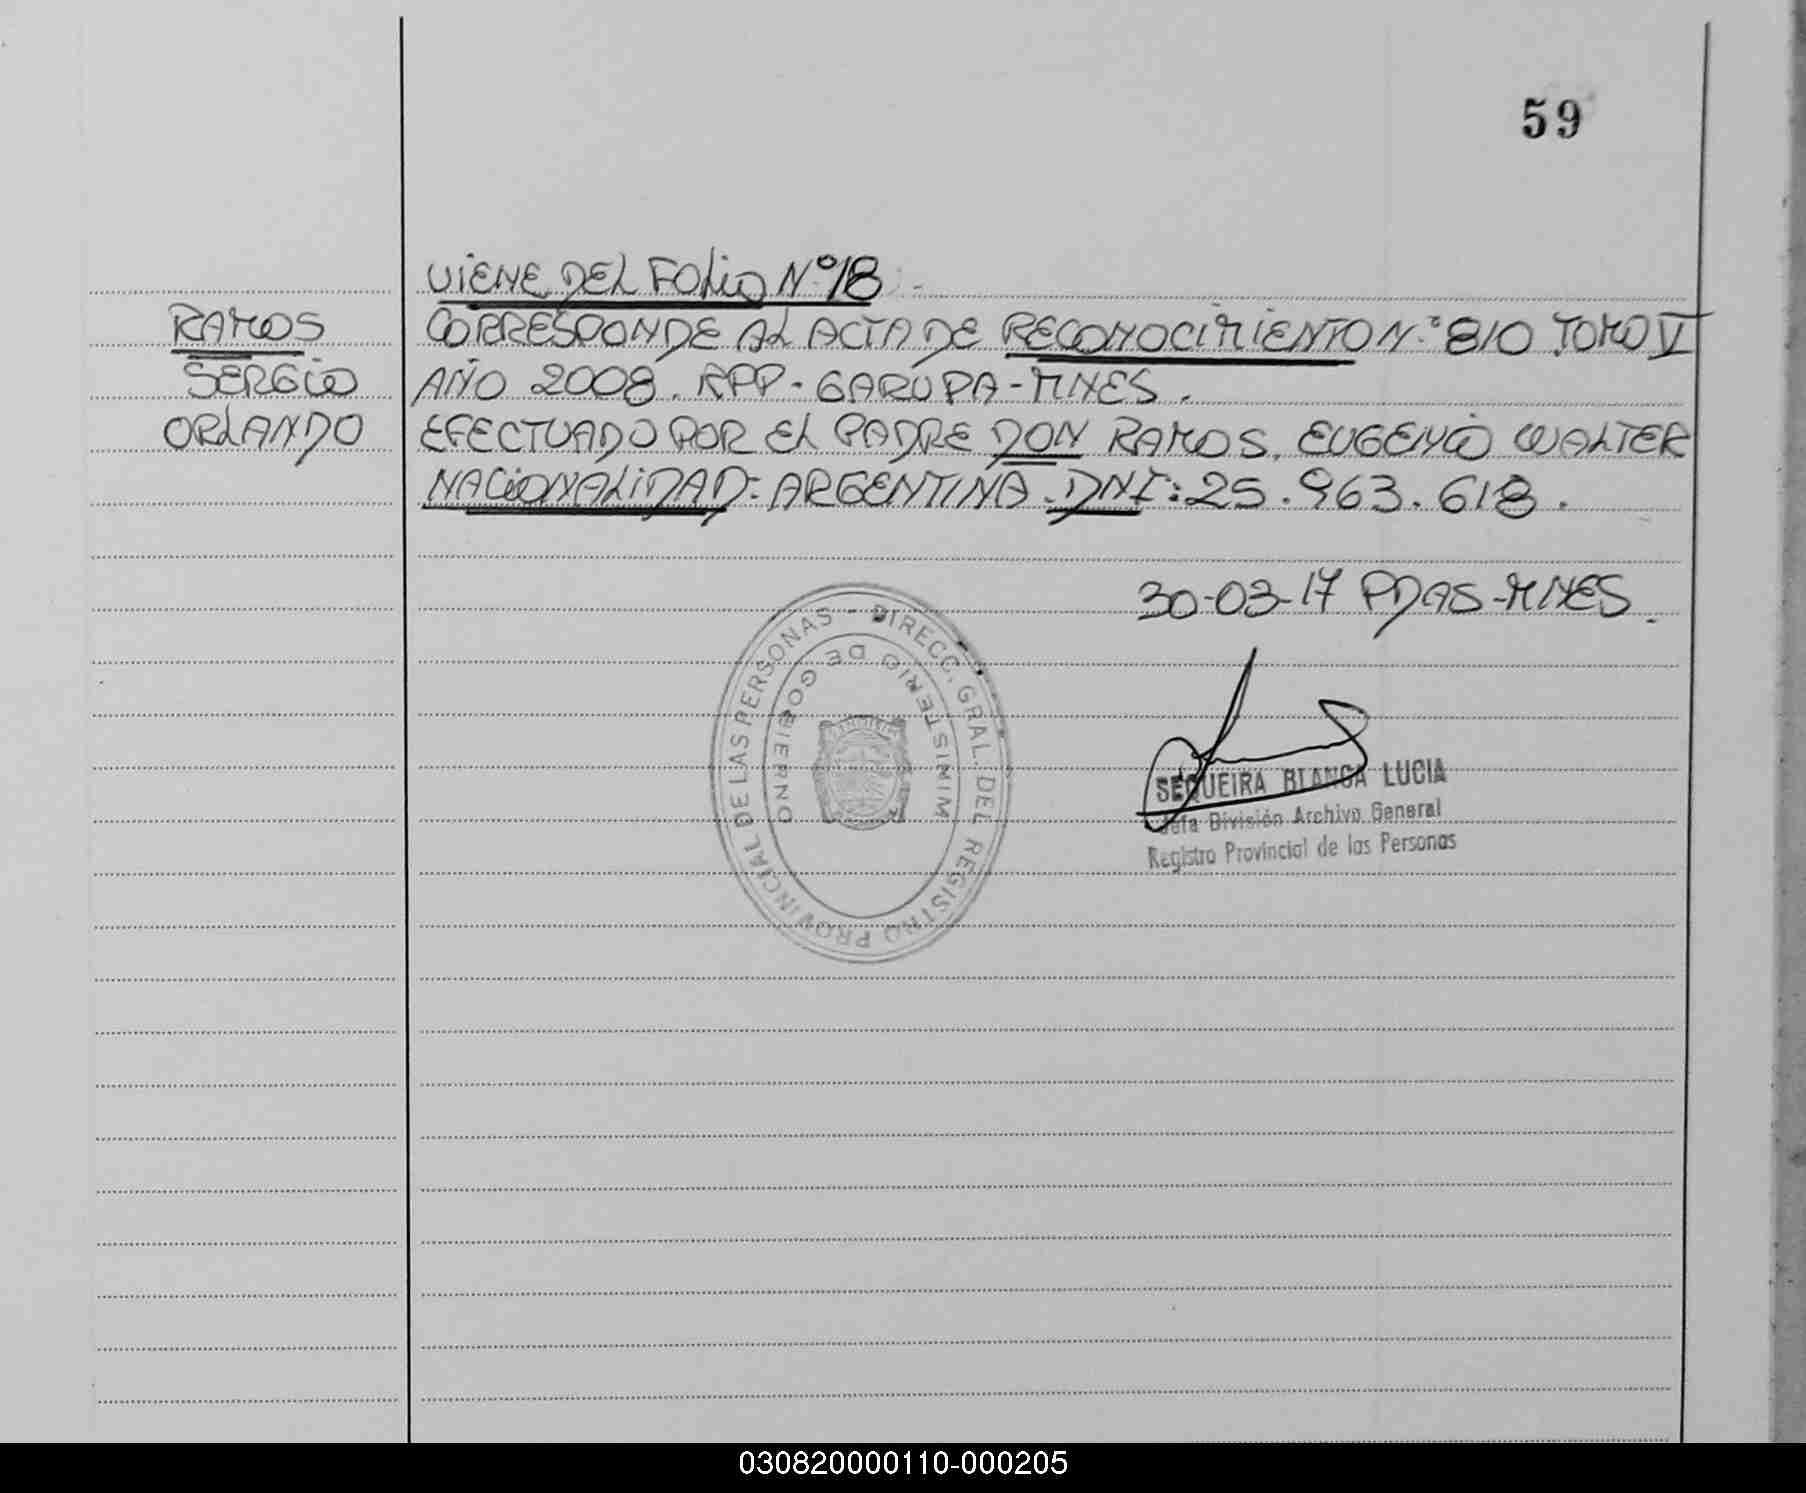 59
VIENE DEL FOLIO N° 18
RAMOS
SERGIO
ORLANDO
CORRESPONDE AL ACTA DE RECONOCIMIENTO N° 810 TOMO V
AÑO 2008. RPP - GARUPA - MNES.
EFECTUADO POR EL PADRE DON RAMOS, EUGENIO WALTER
NACIONALIDAD: ARGENTINA. DNI: 25.963.618.
30-03-17 PDAS - MNES.
DIRECC. GRAL. DEL REGISTRO PROVINCIAL DE LAS PERSONAS -
MINISTERIO DE GOBIERNO
SEQUEIRA BLANCA LUCIA
Jefa División Archivo General
Registro Provincial de las Personas
030820000110-000205